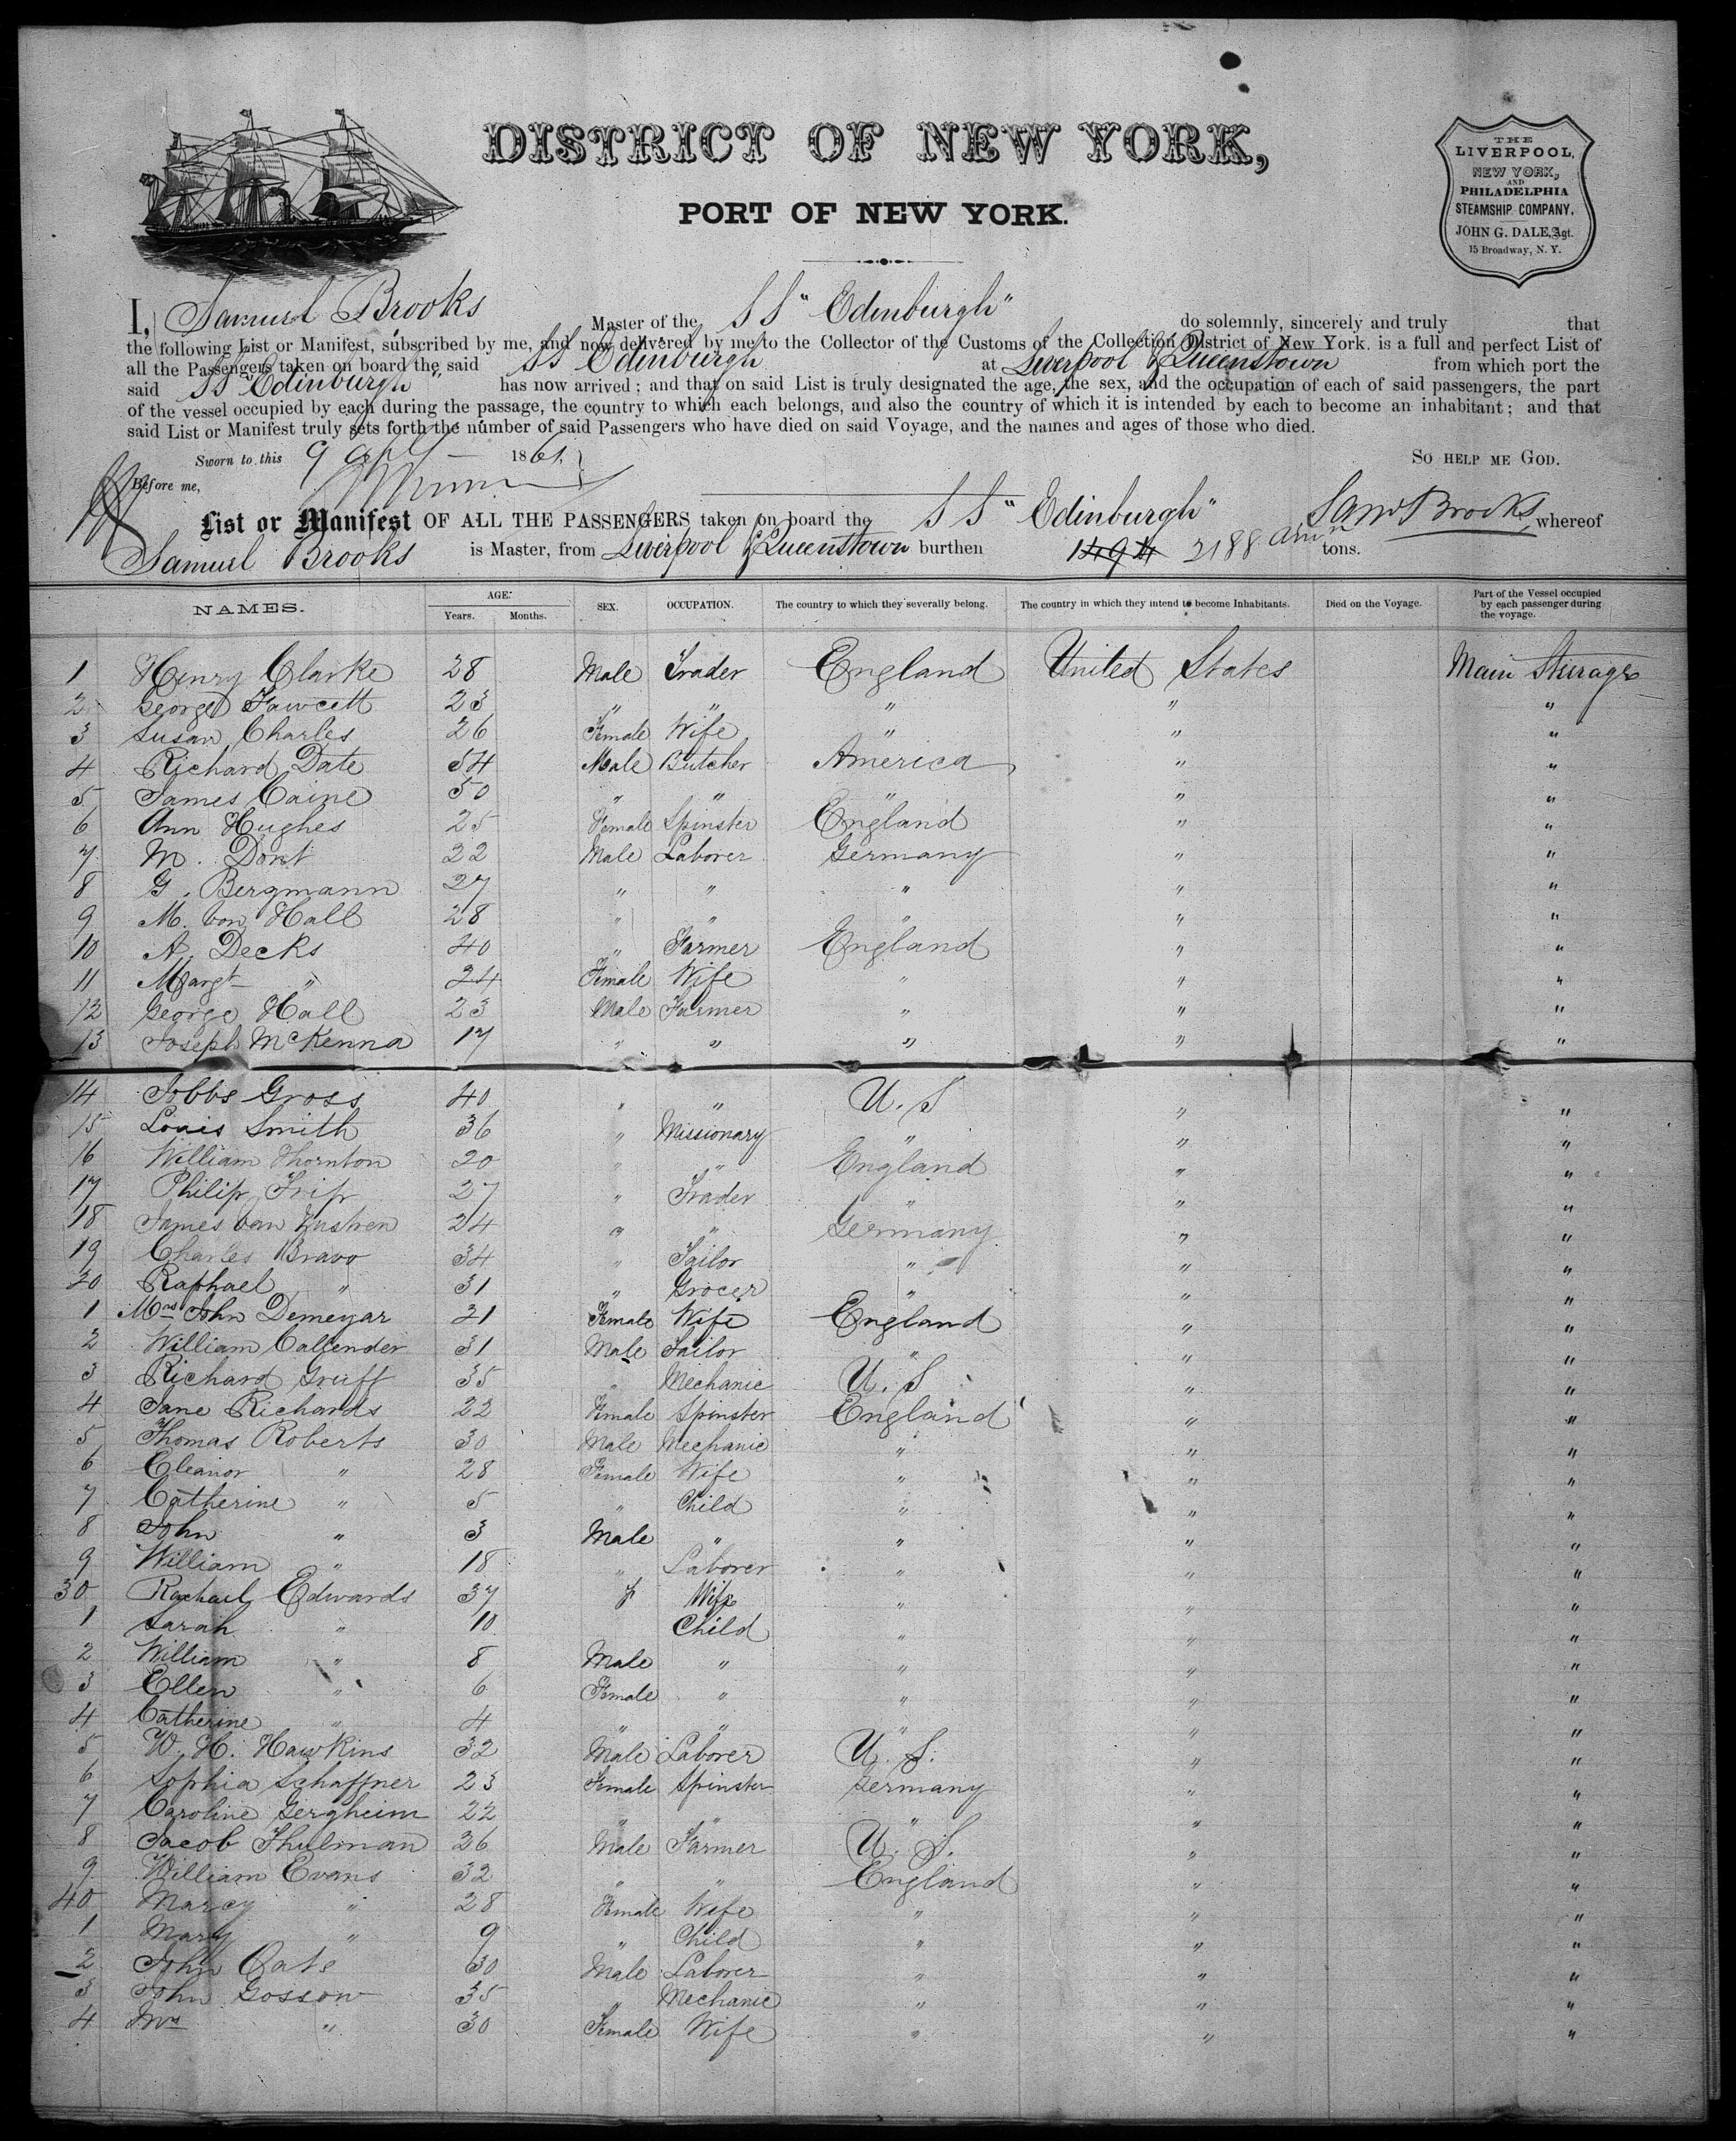 DISTRICT OF NEW YORK,
PORT OF NEW YORK.
THE
LIVERPOOL,
NEW YORK,
AND
PHILADELPHIA
STEAMSHIP COMPANY.
JOHN G. DALE, Agt.
15 Broadway, N. Y.
I, Samuel Brooks Master of the SS "Edinburgh" do solemnly, sincerely and truly that
the following List or Manifest, subscribed by me, and now delivered by me to the Collector of the Customs of the Collection District of New York, is a full and perfect List of
all the Passengers taken on board the said SS Edinburgh at Liverpool & Queenstown from which port the
said SS "Edinburgh" has now arrived; and that on said List is truly designated the age, the sex, and the occupation of each of said passengers, the part
of the vessel occupied by each during the passage, the country to which each belongs, and also the country of which it is intended by each to become an inhabitant; and that
said List or Manifest truly sets forth the number of said Passengers who have died on said Voyage, and the names and ages of those who died.
Sworn to this 9 1861 SO HELP ME GOD.
Before me,
Saml Brooks
List or Manifest OF ALL THE PASSENGERS taken on board the SS "Edinburgh" whereof
Samuel Brooks is Master, from Liverpool & Queenstown burthen 1494 2188 tons.
NAMES. AGE: Years. Months. SEX. OCCUPATION. The country to which they severally belong. The country in which they intend to become Inhabitants. Died on the Voyage. Part of the Vessel occupied by each passenger during the voyage.
1 Henry Clarke 28 Male Trader England United States Main Steerage
2 George Fawcett 23 " " " " "
3 Susan Charles 26 Female Wife " " "
4 Richard Date 54 Male Butcher America " "
5 James Caine 50 " " " " "
6 Ann Hughes 25 Female Spinster England " "
7 M. Dont 22 Male Laborer Germany " "
8 G. Bergmann 27 " " " " "
9 M. von Hall 28 " " " " "
10 A. Decks 40 " Farmer England " "
11 Margt " 24 Female Wife " " "
12 George Hall 23 Male Farmer " " "
13 Joseph McKenna 17 " " " " "
14 Jobbs Gross 40 " " U.S " "
15 Louis Smith 36 " Missionary " " "
16 William Thornton 20 " " England " "
17 Philip Trip 27 " Trader " " "
18 James van 24 " " Germany " "
19 Charles Bravo 34 " Tailor " " "
20 Raphael " 31 " Grocer " " "
1 Mrs John Demeyar 21 Female Wife England " "
2 William Callender 31 Male Tailor " " "
3 Richard Gruff 35 " Mechanic U.S " "
4 Jane Richards 22 Female Spinster England " "
5 Thomas Roberts 30 Male Mechanic " " "
6 Eleanor " 28 Female Wife " " "
7 Catherine " 5 " Child " " "
8 John " 3 Male " " " "
9 William " 18 " Laborer " " "
30 Rachael Edwards 37 f Wife " " "
1 Sarah " 10 Child " " "
2 William " 8 Male " " " "
3 Ellen " 6 Female " " " "
4 Catherine " 4 " " " " "
5 W. H. Hawkins 32 Male Laborer U.S. " "
6 Sophia Schaffner 23 Female Spinster Germany " "
7 Caroline Gergheim 22 " " " " "
8 Jacob Thulman 26 Male Farmer U.S. " "
9 William Evans 32 " " England " "
40 Marcy " 28 Female Wife " " "
1 Mary " 9 " Child " " "
2 John Oats 30 Male Laborer " " "
3 John Gossow 35 " Mechanic " " "
4 Mrs " 30 Female Wife " " "